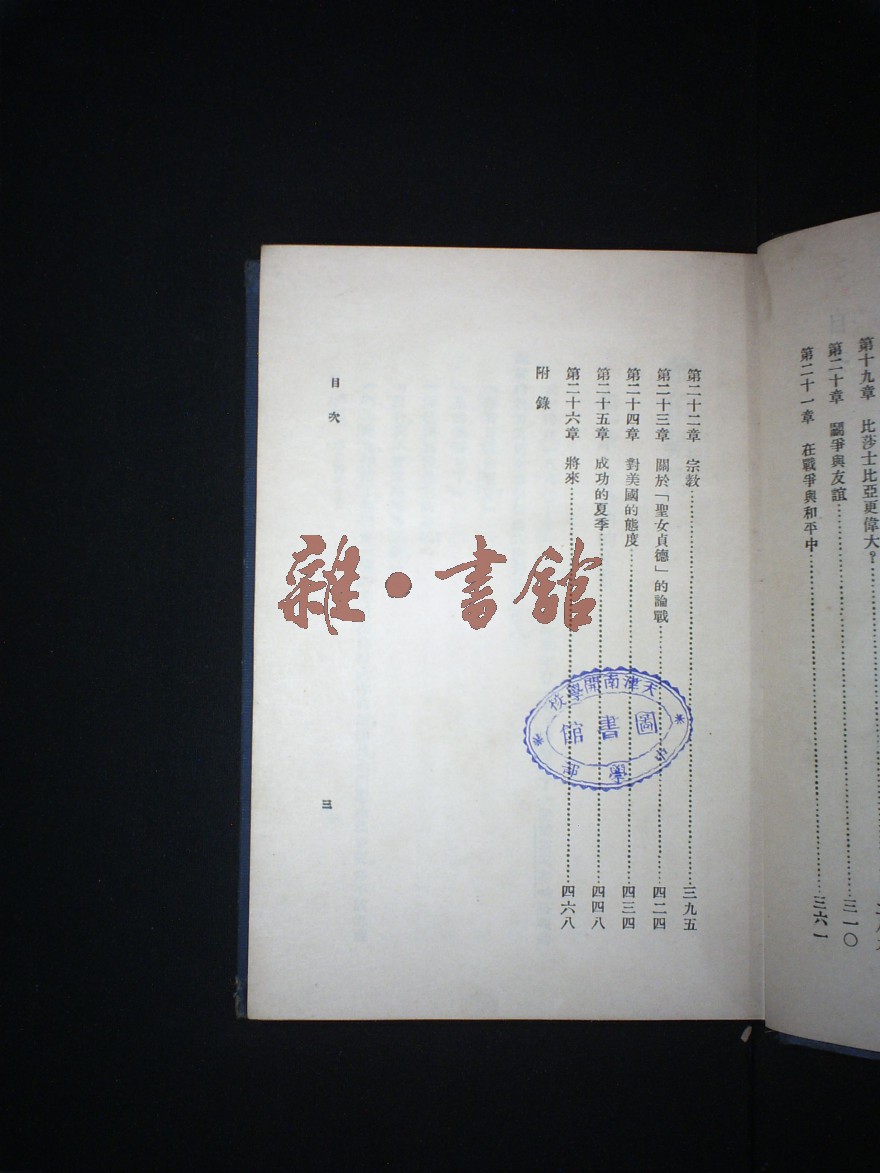 第十九章　比莎士比亞更偉大？
第二十章　鬭爭與友誼……三一〇
第二十一章　在戰爭與和平中……三六一
第二十二章　宗教……三九五
第二十三章　關於「聖女貞德」的論戰……四二四
第二十四章　對美國的態度……四三四
第二十五章　成功的夏季……四四八
第二十六章　將來……四六八
附錄
目次
三
雜・書館
天津南開學校
圖書館
中學部